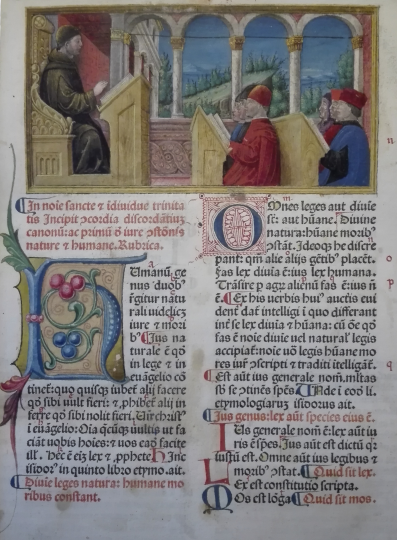 In noie sancte & idividue trinita
tis Incipit ɔcordia discordātium
canonū: ac primū d̄ iure ɔstōnis
nature & humane. Rubrica.
Humanū ge
nus duob⁹
regitur natu
rali videlicz
iure & mori
b⁹. Jus na
turale ē qd̄
in lege & in
euāgelio cō
tinet: quo quisq; iubet alij facere
qd̄ sibi vult fieri: & phibet alij in
ferre qd̄ sibi nolit fieri. Vn̄ christ⁹
i euāgelio: Oīa q̄cūq; vultis ut fa
ciāt vobis hoīes: & vos eadē facite
ill'. Hec ē eī lex & pphete. Hinc
isidor⁹ in quinto libro etymo. ait.
Diuīe leges natura: humane mo
ribus constant.
m
Omnes leges aut diuīe
sūt: aut hūane. Diuine
natura: hūane morib⁹
ɔstāt. Ideoq; he discre
pant: qm̄ alie alijs gētib⁹ placēt.
Fas lex diuīa ē: ius lex humana.
Trāsire p agr̄ alienū fas ē: ius nō
ē. Ex his verbis hui⁹ auctīs eui
dent dat̄ intelligi ī quo differant
inē se lex diuīa & hūana: cū ōe qd̄
fas ē noīe diuīe vel naturał legis
accipiat̄: noīe vō legis hūane mo
res iur̄ ɔscripti & traditi ītelligāt̄.
Est aūt ius generale nom̄. mltas
sb se ɔtinēs spēs. Vnde ī eod li.
etymologiarum isidorus ait.
Jus genus: lex aūt species eius ē.
Ius generale nom̄ ē: lex aūt iu
ris ē spēs. Jus aūt est dictū q̄
iust̄ est. Omne aūt ius legibus &
morib⁹ ɔstat. Quid sit lex.
Lex est constitutio scripta.
Mos est lōga Quid sit mos.
n
o
p
q